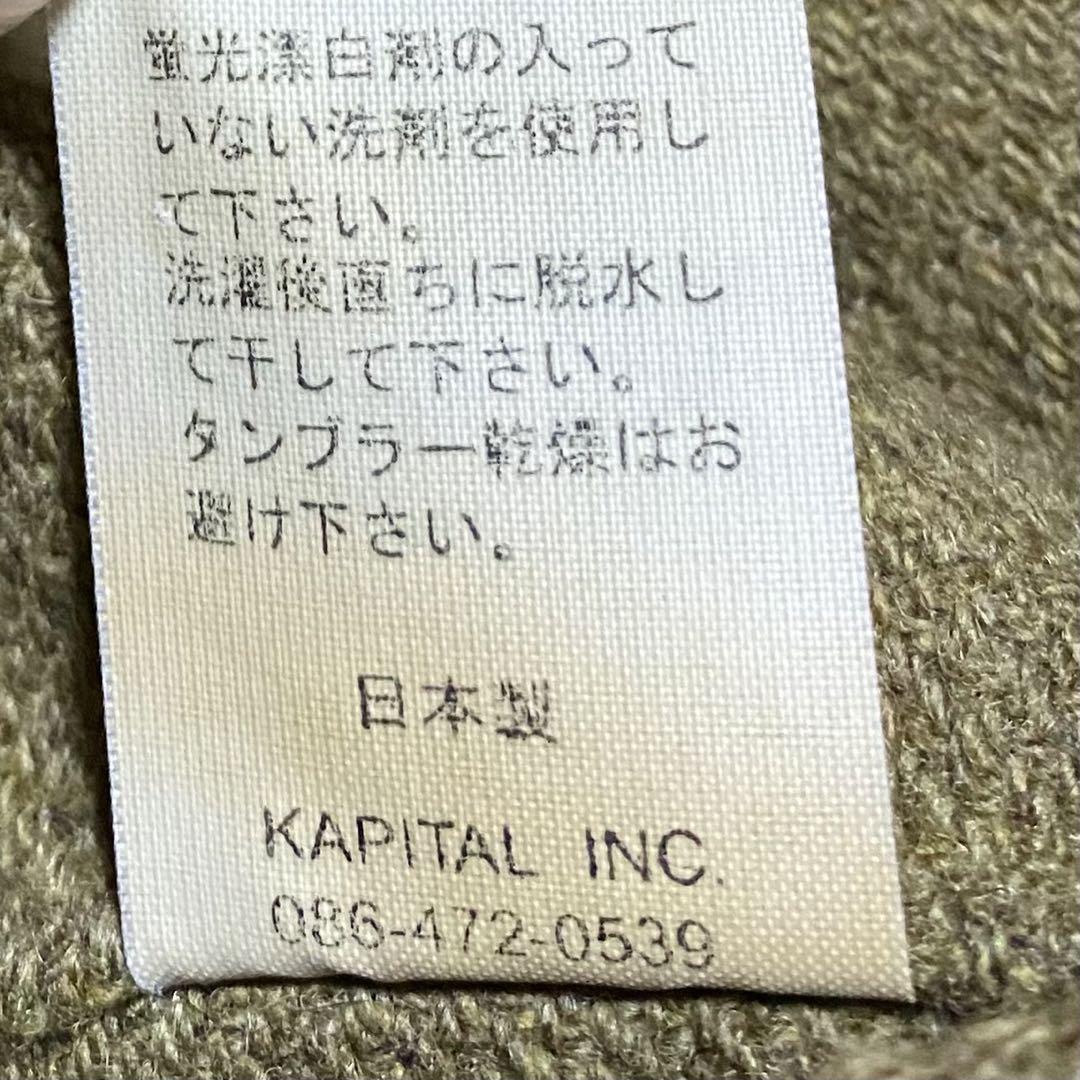 蛍光漂白剤の入って
いない洗剤を使用し
て下さい。
洗濯後直ちに脱水し
て干して下さい。
タンブラー乾燥はお
避け下さい。
日本製
KAPITAL INC.
086-472-0539